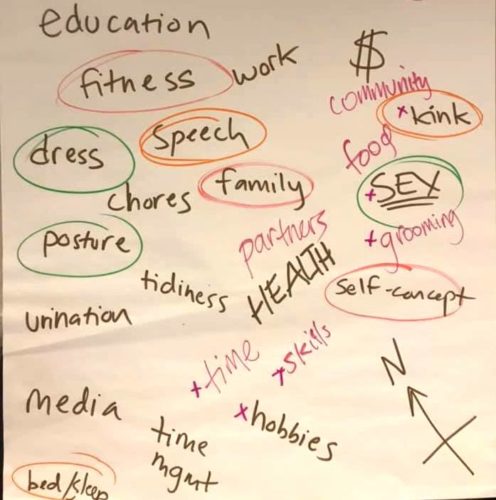 education
$
fitness
work
community
x kink
speech
food
dress
family
+ SEX
chores
partners
+ grooming
posture
HEALTH
tidiness
self-concept
urination
+ time
x skills
N
media
x hobbies
time
mgmt
bed/sleep